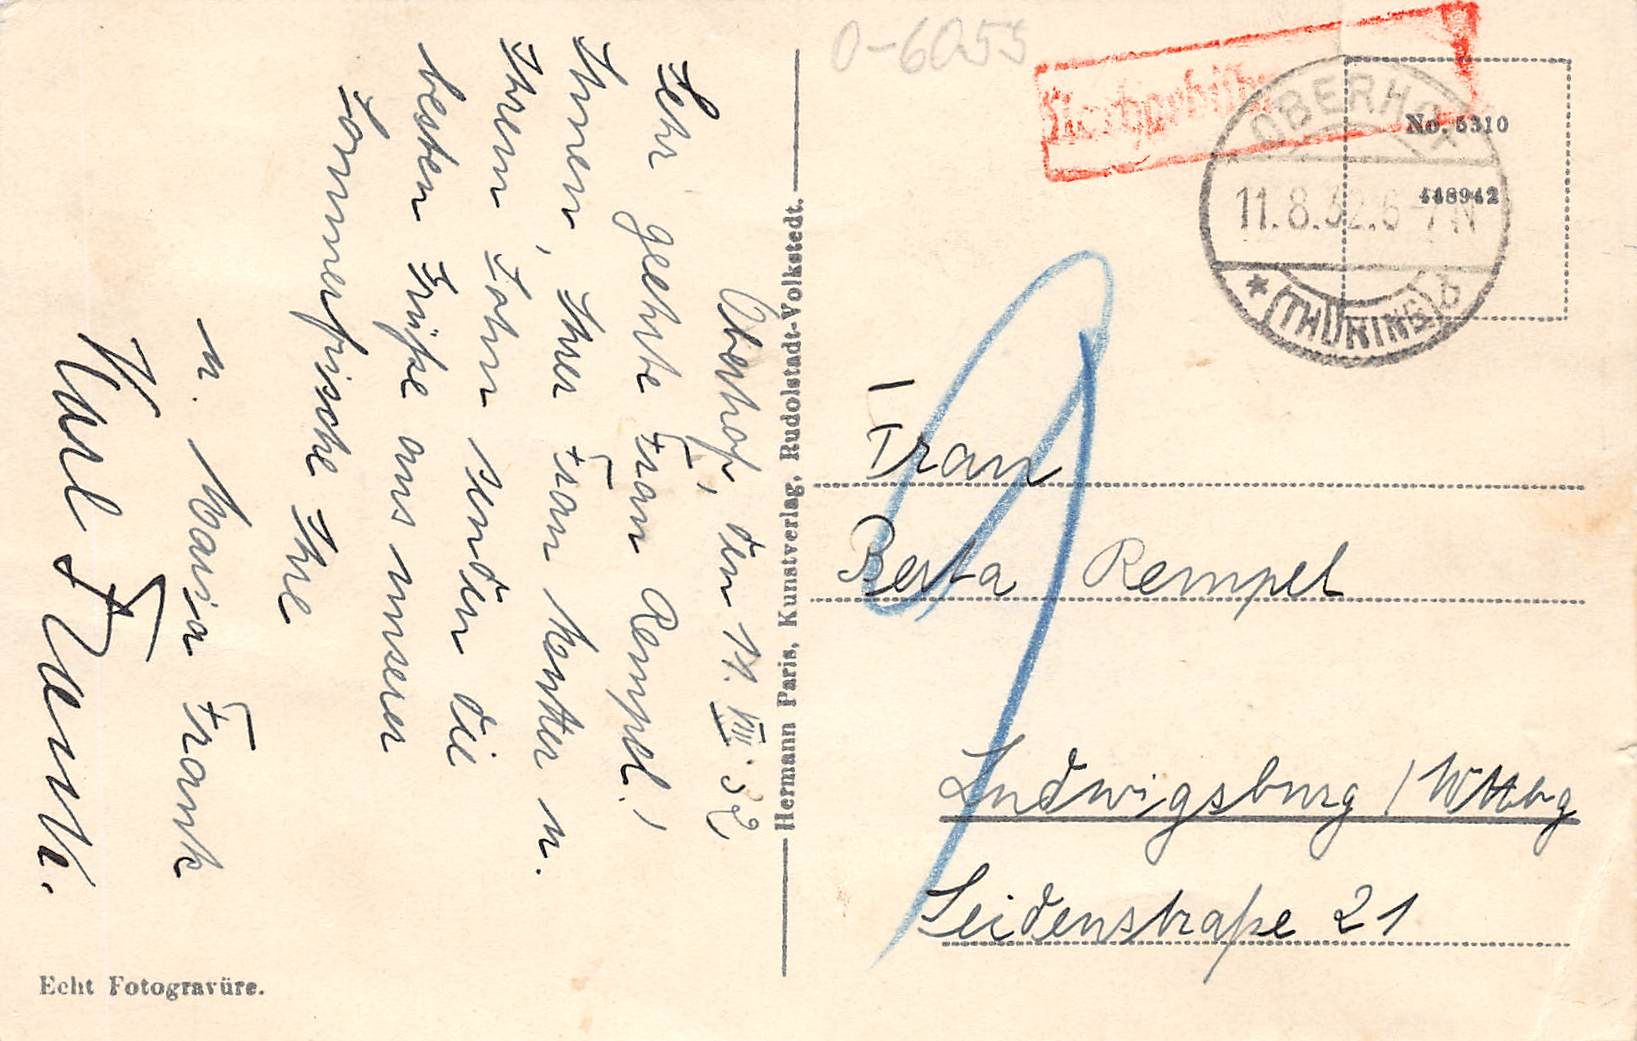 Oberhof, den 11. VIII. 32
Sehr geehrte Frau Rempel!
Ihnen, Ihrer Frau Mutter u.
Ihrem Sohn senden die
besten Grüße aus unserer
Sommerfrische Ihre
u. Maria Frank
Karl Frank.
Echt Fotogravüre.
Hermann Paris, Kunstverlag, Rudolstadt-Volkstedt.
0-6055
Nachgebühr
OBERHOF
11.8.32.6-7N
* (THÜRING) b
No. 5310
448942
Frau
Berta Rempel
Ludwigsburg / Wttbg
Seidenstraße 21